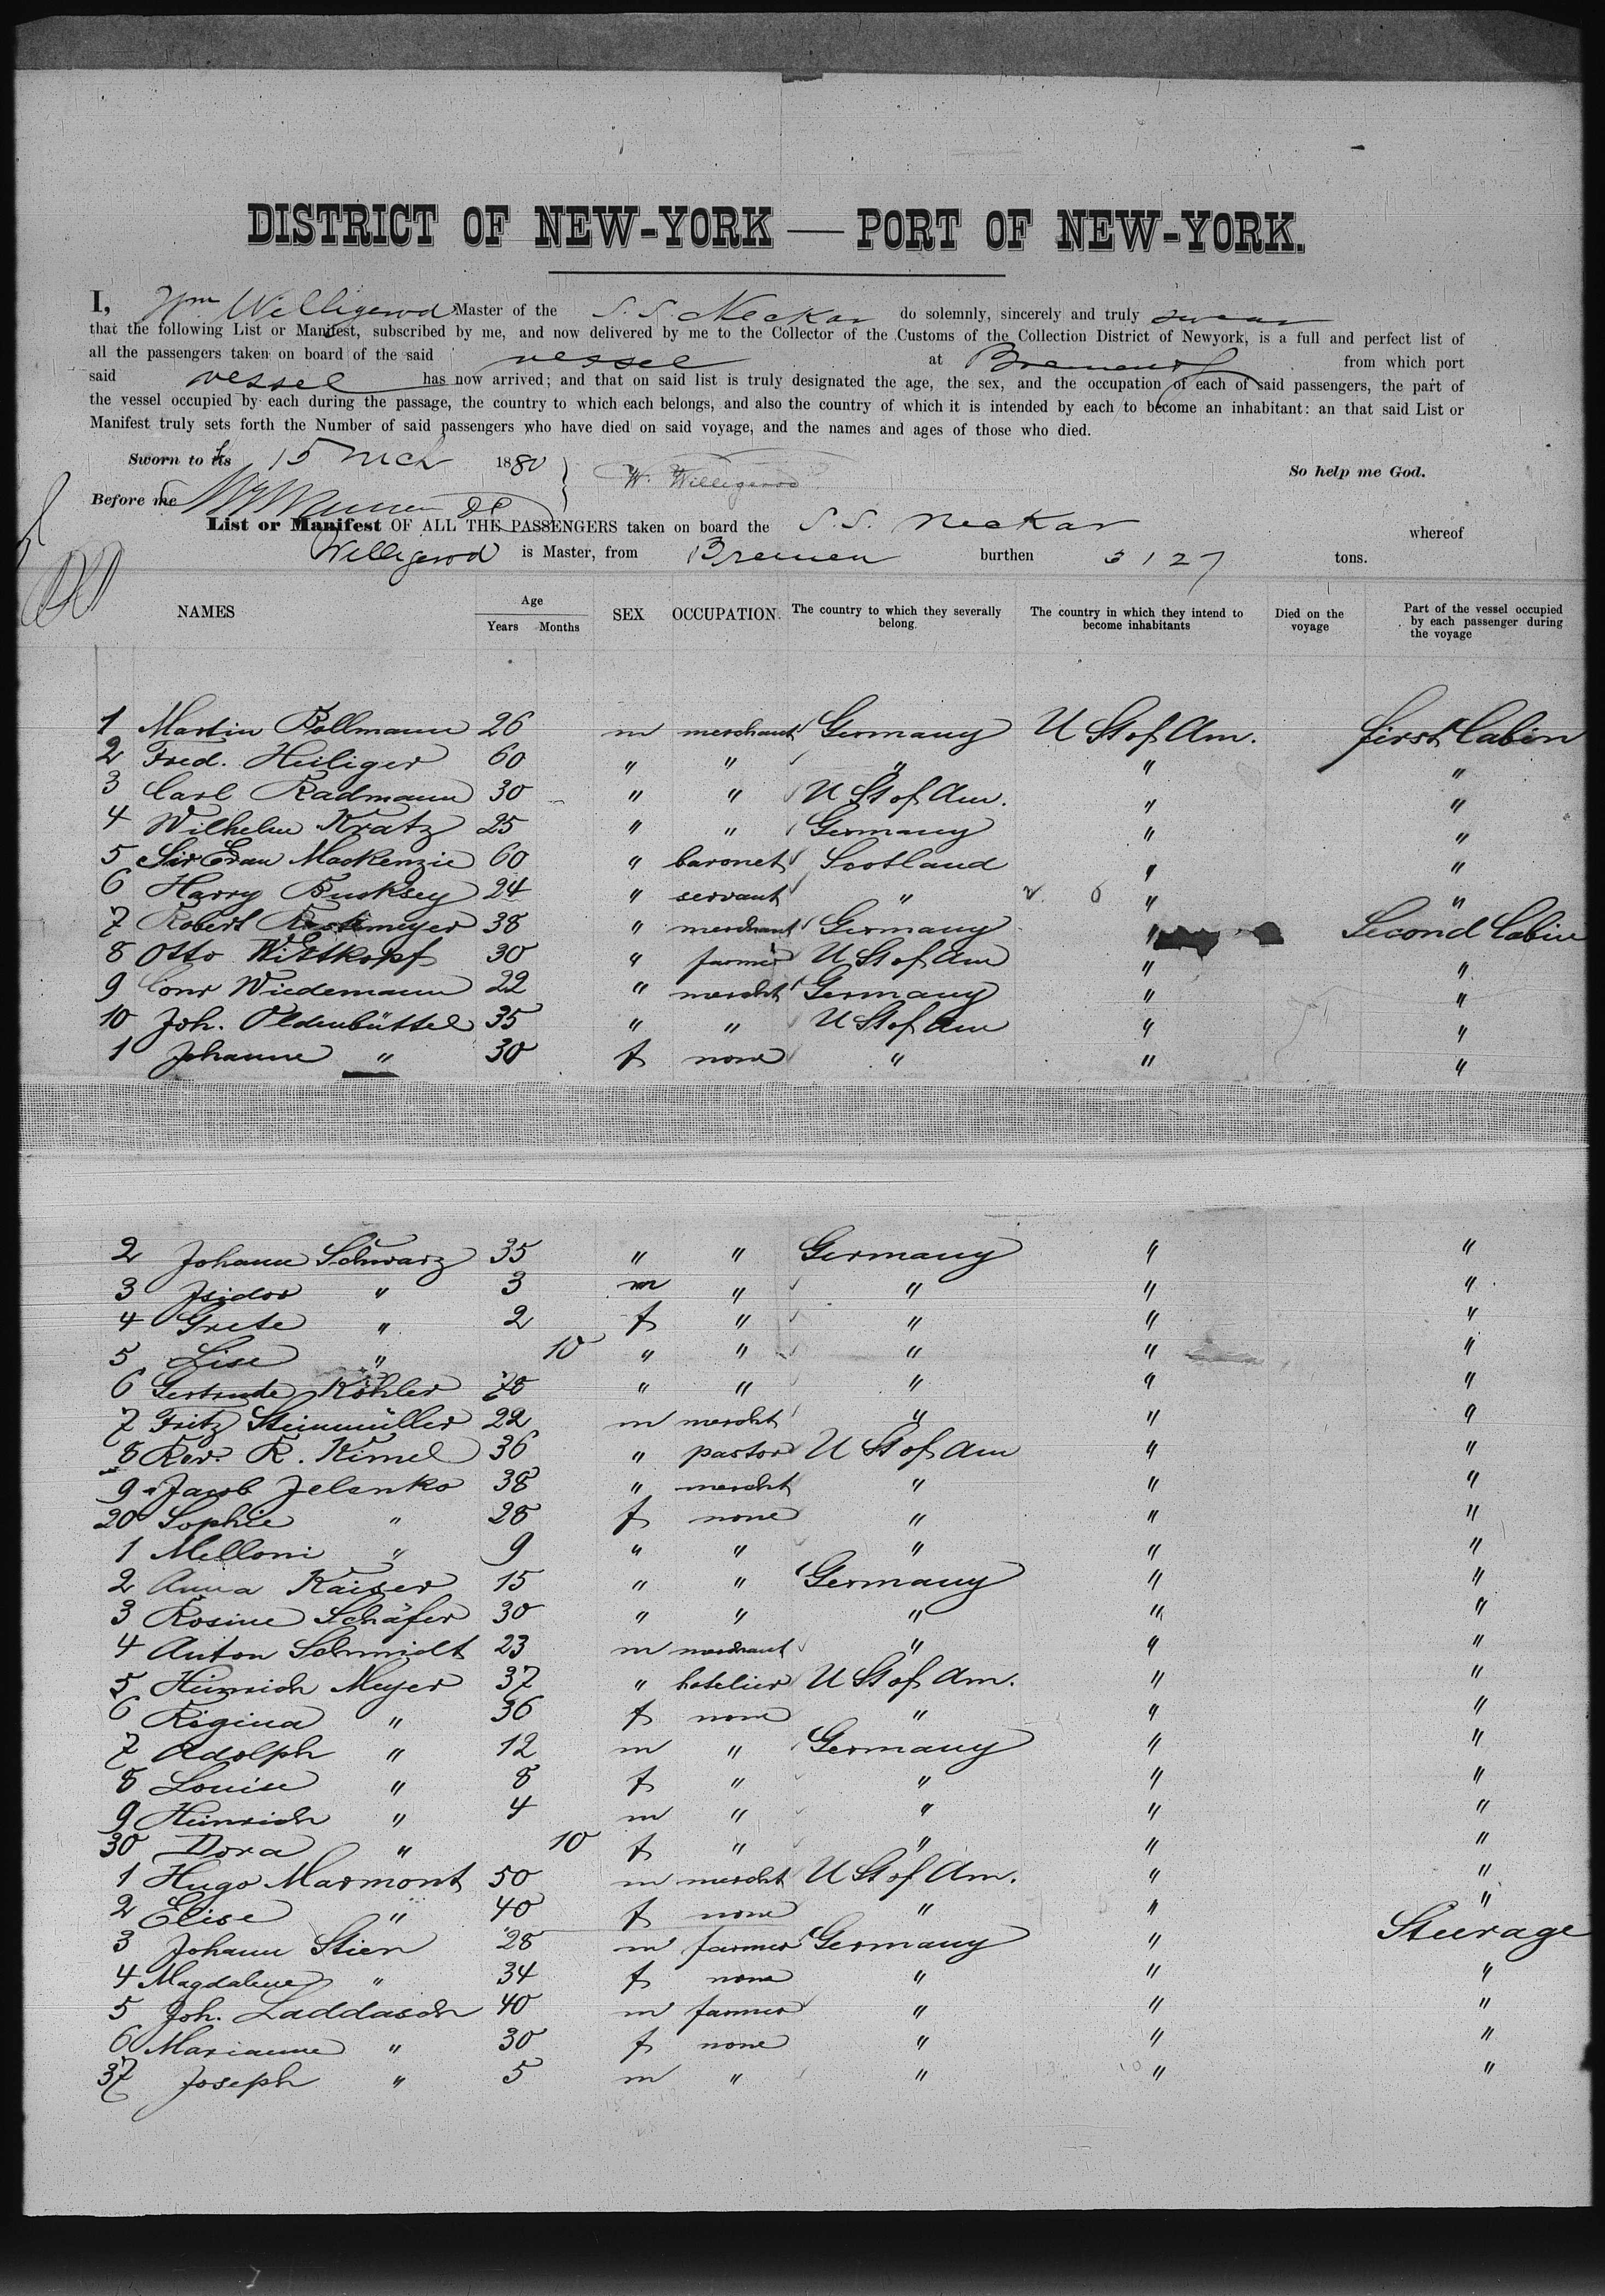 DISTRICT OF NEW-YORK — PORT OF NEW-YORK.
I, Wm Willigerod Master of the S. S. Neckar do solemnly, sincerely and truly swear
that the following List or Manifest, subscribed by me, and now delivered by me to the Collector of the Customs of the Collection District of Newyork, is a full and perfect list of
all the passengers taken on board of the said vessel at Bremen from which port
said vessel has now arrived; and that on said list is truly designated the age, the sex, and the occupation of each of said passengers, the part of
the vessel occupied by each during the passage, the country to which each belongs, and also the country of which it is intended by each to become an inhabitant: an that said List or
Manifest truly sets forth the Number of said passengers who have died on said voyage, and the names and ages of those who died.
Sworn to 15 Mch 1880 W. Willigerod So help me God.
Before me
List or Manifest OF ALL THE PASSENGERS taken on board the S. S. Neckar whereof
Willigerod is Master, from Bremen burthen 3127 tons.
NAMES Age Years Months SEX OCCUPATION. The country to which they severally belong. The country in which they intend to become inhabitants Died on the voyage Part of the vessel occupied by each passenger during the voyage
1 Martin Pollmann 26 m merchant Germany U St of Am. first Cabin
2 Fred. Heiliger 60 " " " " "
3 Carl Radmann 30 " " U St of Am. " "
4 Wilhelm Kratz 25 " " Germany " "
5 Sir Evan Mackenzie 60 " baronet Scotland " "
6 Harry Bucksey 24 " servant " " "
7 Robert 38 " merchant Germany " Second Cabin
8 Otto Wittkopf 30 " farmer U St of Am " "
9 Conr Wiedemann 22 " mercht Germany " "
10 Joh. Oldenbüttel 35 " " U St of Am " "
1 Johanne " 30 f none " " "
2 Johanne Schwarz 35 " " Germany " "
3 Isidor " 3 m " " " "
4 Grete " 2 f " " " "
5 Lise " 10 " " " " "
6 Gertrude Köhler " " " " "
7 Fritz Steinmüller 22 m mercht " " "
8 Rev. R. Kimel 36 " pastor U St of Am " "
9 Jacob Jelenko 38 " mercht " " "
20 Sophie " 28 f none " " "
1 Melloni " 9 " " " " "
2 Anna Kaiser 15 " " Germany " "
3 Rosine Schäfer 30 " " " " "
4 Anton Schmidt 23 m merchant " " "
5 Heinrich Meyer 37 " hotelier U St of Am. " "
6 Regina " 36 f none " " "
7 Adolph " 12 m " Germany " "
8 Louise " 8 f " " " "
9 Heinrich " 4 m " " " "
30 Dora " 10 f " " " "
1 Hugo Marmont 50 m mercht U St of Am. " "
2 Elise " 40 f none " " "
3 Johann Stien 28 m farmer Germany " Steerage
4 Magdalene " 34 f none " " "
5 Joh. Laddasch 40 m farmer " " "
6 Marianne " 30 f none " " "
37 Joseph " 5 m " " " "